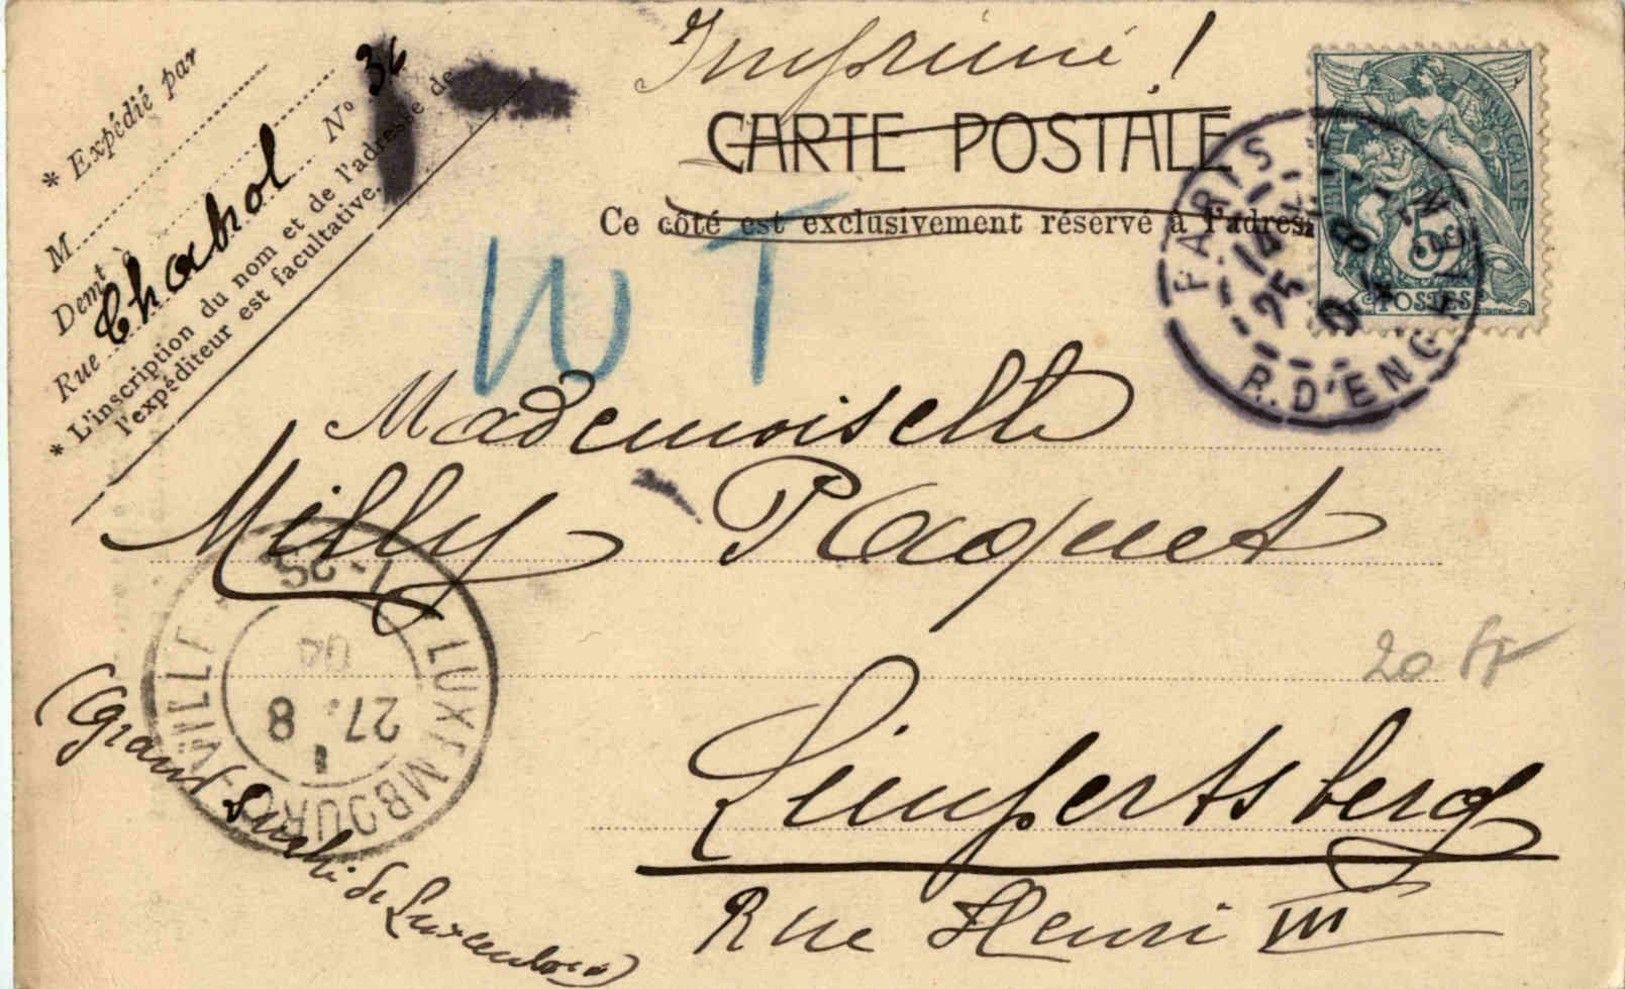 Imprimé !
CARTE POSTALE
Ce côté est exclusivement réservé à l'adres
* Expédié par
M
Demt à
Rue Chabrol No 36
* L'inscription du nom et de l'adresse de
l'expéditeur est facultative.
WT
RÉPUBLIQUE FRANÇAISE
5c
POSTES
PARIS
R. D'ENGHIEN
14
25 8
04
Mademoiselle
Milly Paquet
Limpertsberg
Rue Henri VII
(Grand Duché de Luxembourg)
LUXEMBOURG-VILLE
27. 8
04
20 fr